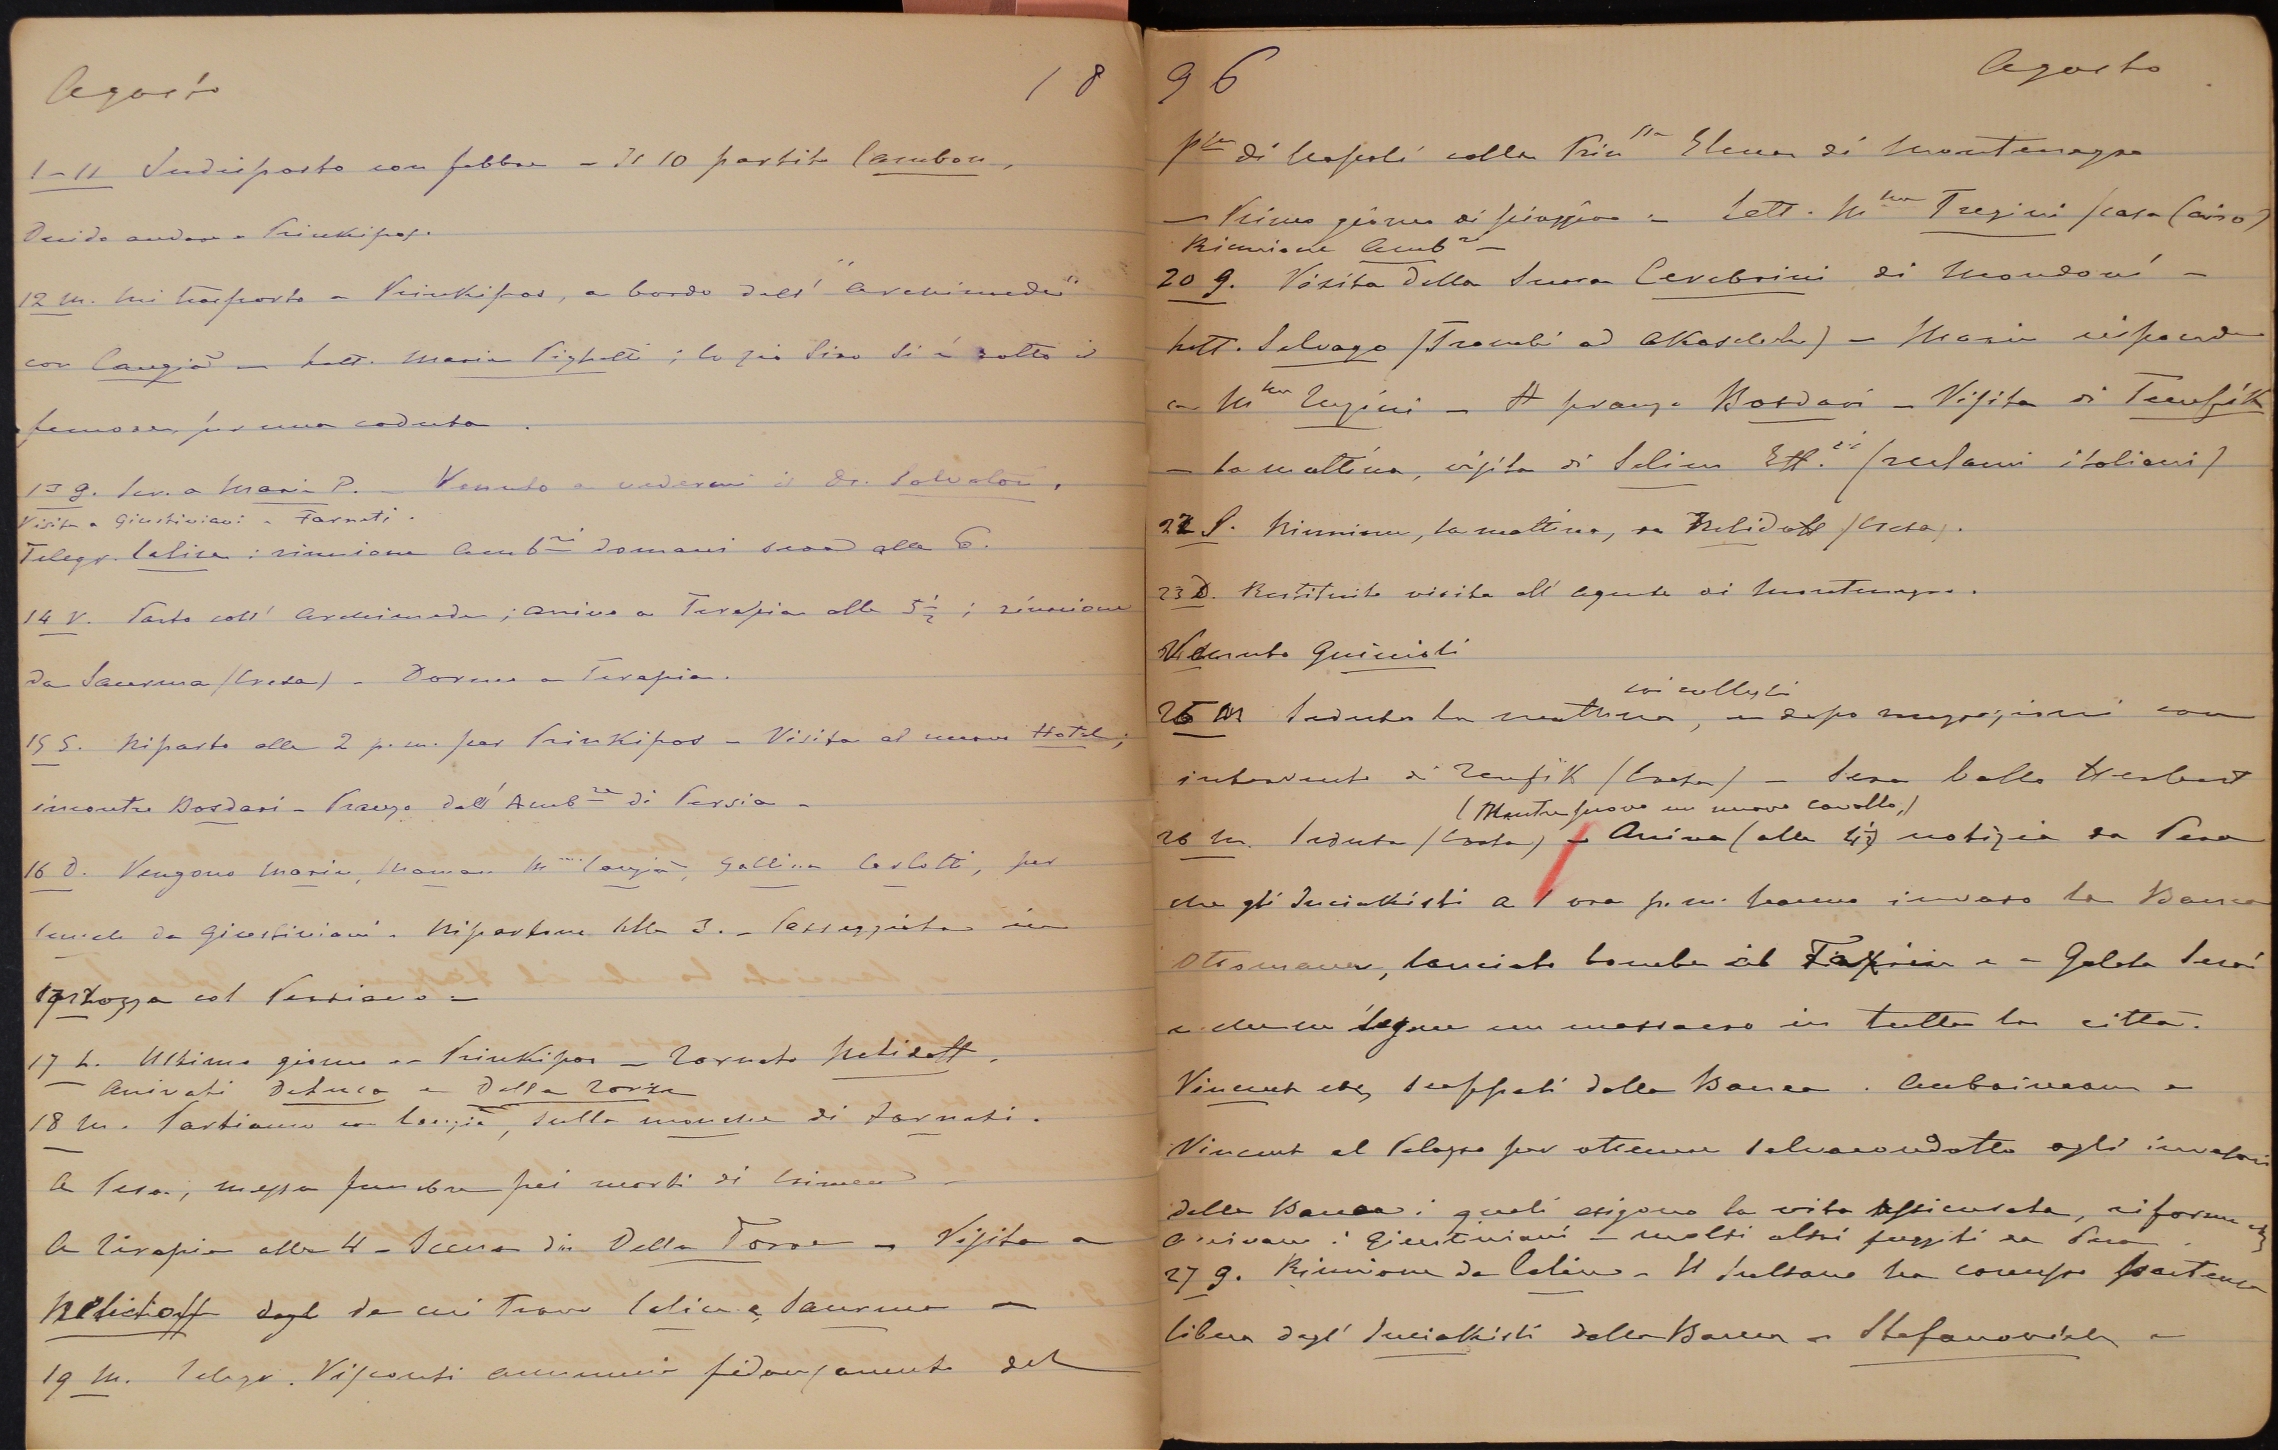 Agosto 18
1-11 Indisposto con febbre - Il 10 partito Cambon,
Decido andare a Prinkipos.
12 M. Mi trasporto a Prinkipos, a bordo dell' "Archimede"
con Cangià - Lett. Maria Pighetti; lo zio Siro si è rotto il
femore, per una caduta.
13 g. Scr. a Maria P. - Venuto a vedermi il Dr. Salvatori.
Visita a Giustiniani e Zarnati.
Telegr. Calice: riunione Amb.ri domani sera alle 6.
14 V. Parto coll' Archimede; arrivo a Terapia alle 5 ½; riunione
da Saurma (Creta) - Dormo a Terapia.
15 S. Riparto alle 2 p.m. per Prinkipos - Visita al nuovo Hotel;
incontro Bosdari - Pranzo dall' Amb.re di Persia -
16 D. Vengono Maria, Maman, Mme Cangià, Gallina, Carlotti, per
lunch da Giustiniani. Ripartono alle 3. - Passeggiata in
carrozza col Persiano -
17 L. Ultimo giorno a Prinkipos - Tornato Nelidoff.
Arrivati Deluca e Della Torre
18 M. Partiamo con Cangià, sulla mouche di Zarnati.
A Pera, messa funebre pei morti di Crimea -
A Terapia alle 4 - Scena din Della Torre - Visita a
Nelidoff dagl da cui trovo Calice e Saurma -
19 M. Telegr. Visconti annuncia fidanzamento del
96 Agosto
Ppe di Napoli colla Prin.ssa Elena di Montenegro
- Primo giorno di pioggia - Lett. Mme Tregini (casa Cairo)
Riunione Amb.ri -
20 g. Visita della Suora Cerebrini di Mondovì -
Lett. Salvago - Maria risponde
a Mme Tregini - A pranzo Bosdari - Visita di Tewfik
- La mattina, visita di Selim Eff.di (reclami italiani)
22 S. Riunione, la mattina, da Nelidoff (Creta).
23 D. Restituito visita all' Agente di Montenegro.
Venuto Guicioli
25 M Seduta la mattina, coi colleghi e dopo mezzogiorno con
intervento di Tewfik (Creta) - Sera ballo Herbert
(Mentre provo un nuovo cavallo,)
26 M. Seduta (Creta) - Arriva (alle 4½) notizia da Pera
che gli Hinciakisti a 1 ora p.m. hanno invaso la Banca
Ottomana, lanciato bombe al Taxim e a Galata Seraï
e che ne segue un massacro in tutta la città.
Vincent etc, scappati dalla Banca. Ambasciatori e
Vincent al Palazzo per ottenere salvacondotto agli invasori
della Banca i quali esigono la vita assicurata, riforme etc
Arrivano i Giustiniani - molti altri fuggiti da Pera.
27 g. Riunione da Calice - Il Sultano ha concesso partenza
libera degl' Hinciakisti dalla Banca - Stefanovich e